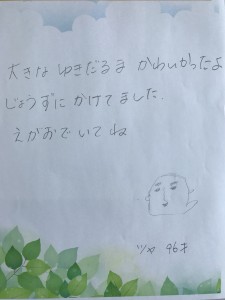 大きな ゆきだるま かわいかったよ
じょうずに かけてました.
えがおでいてね
ツヤ 96才